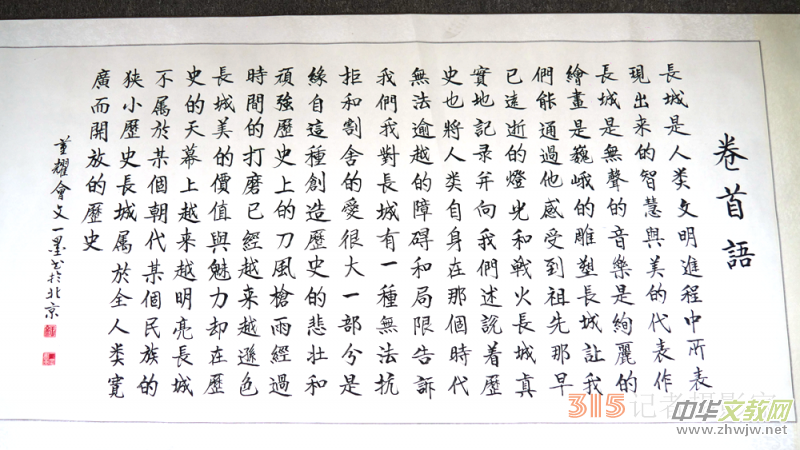 卷首語
長城是人类文明進程中所表
現出來的智慧與美的代表作
長城是無聲的音樂是絢麗的
繪畫是巍峨的雕塑長城讓我
們能通過他感受到祖先那早
已遠逝的燈光和戰火長城真
實地記录并向我們述説着歷
史也將人类自身在那個時代
無法逾越的障碍和局限告訴
我們我對長城有一種無法抗
拒和割舍的愛很大一部分是
緣自這種創造歷史的悲壮和
頑強歷史上的刀風槍雨經過
時間的打磨已經越来越遜色
長城美的價值與魅力却在歷
史的天幕上越来越明亮長城
不属於某個朝代某個民族的
狹小歷史長城属於全人类寬
廣而開放的歷史
董耀會文一墨书於北京
315记者摄影家
中华文教网
www.zhwjw.net